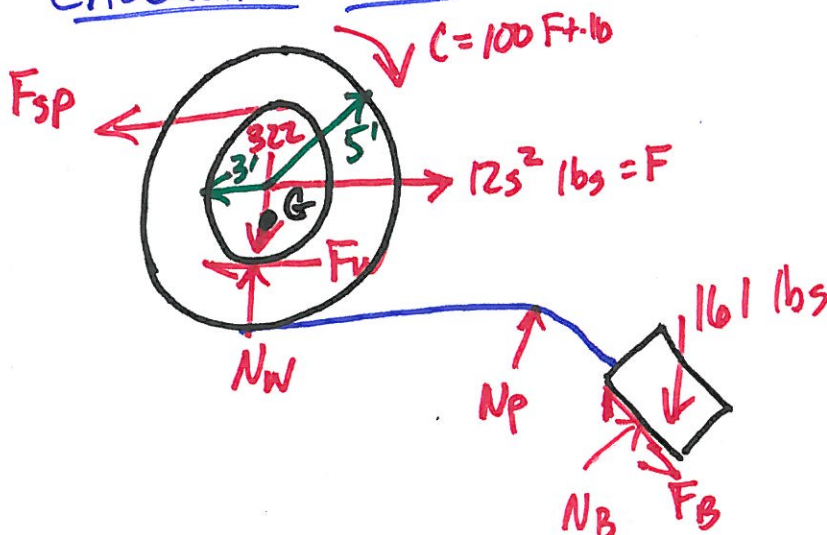 C = 100 Ft·lb
Fsp
322
3'
5'
12s² lbs = F
G
Nw
161 lbs
Np
NB
FB